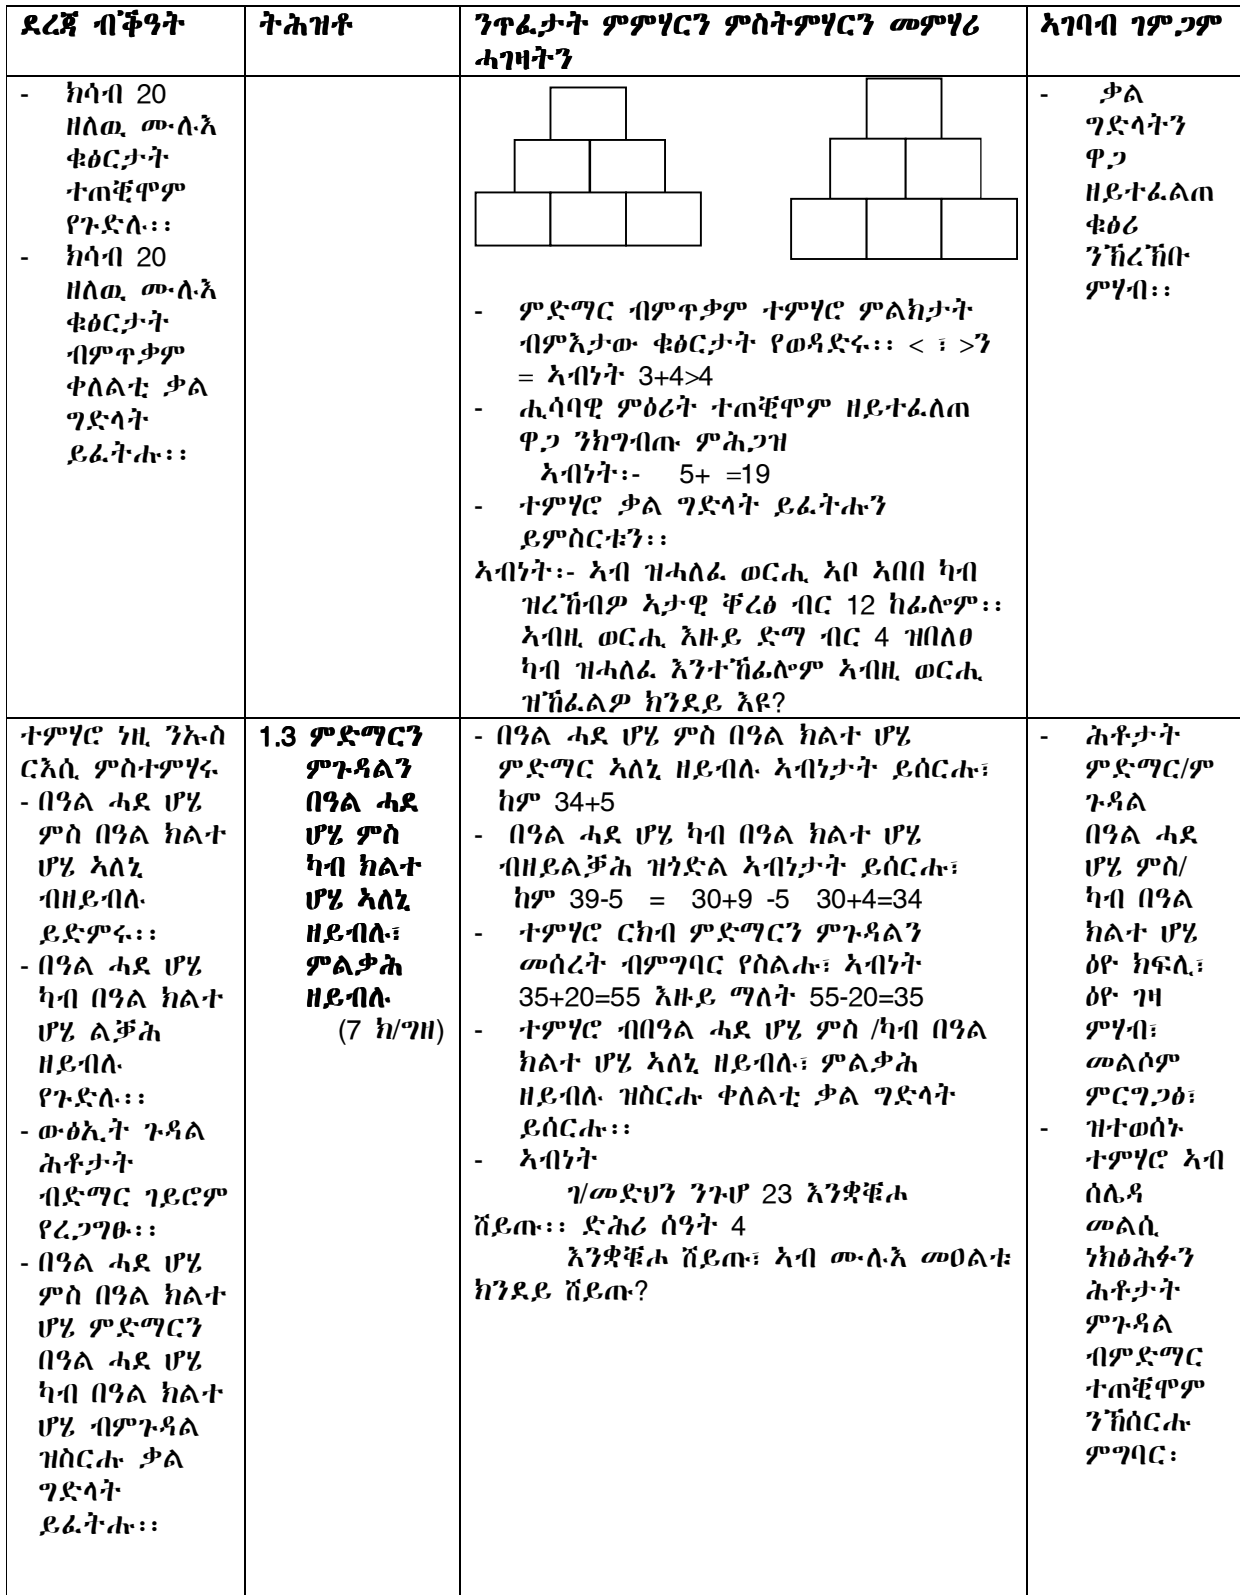 ደረጃ ብቕዓት
ትሕዝቶ
ንጥፈታት ምምሃርን ምስትምሃርን መምሃሪ
ሓገዛትን
ኣገባብ ገምጋም
- ክሳብ 20
ዘለዉ ሙሉእ
ቁፅርታት
ተጠቒሞም
የጉድሉ፡፡
- ክሳብ 20
ዘለዉ ሙሉእ
ቁፅርታት
ብምጥቃም
ቀለልቲ ቃል
ግድላት
ይፈትሑ፡፡
- ምድማር ብምጥቃም ተምሃሮ ምልክታት
ብምእታው ቁፅርታት የወዳድሩ፡፡ < ፣ >ን
= ኣብነት 3+4>4
- ሒሳባዊ ምዕሪት ተጠቒሞም ዘይተፈለጠ
ዋጋ ንክግብጡ ምሕጋዝ
ኣብነት፡- 5+ =19
- ተምሃሮ ቃል ግድላት ይፈትሑን
ይምስርቱን፡፡
ኣብነት፡- ኣብ ዝሓለፈ ወርሒ ኣቦ ኣበበ ካብ
ዝረኸብዎ ኣታዊ ቐረፅ ብር 12 ከፊሎም፡፡
ኣብዚ ወርሒ እዙይ ድማ ብር 4 ዝበለፀ
ካብ ዝሓለፈ እንተኸፊሎም ኣብዚ ወርሒ
ዝኸፈልዎ ክንደይ እዩ?
- ቃል
ግድላትን
ዋጋ
ዘይተፈልጠ
ቁፅሪ
ንኽረኽቡ
ምሃብ፡፡
ተምሃሮ ነዚ ንኡስ
ርእሲ ምስተምሃሩ
- በዓል ሓደ ሆሄ
ምስ በዓል ክልተ
ሆሄ ኣለኒ
ብዘይብሉ
ይድምሩ፡፡
- በዓል ሓደ ሆሄ
ካብ በዓል ክልተ
ሆሄ ልቓሕ
ዘይብሉ
የጉድሉ፡፡
- ውፅኢት ጉዳል
ሕቶታት
ብድማር ገይሮም
የረጋግፁ፡፡
- በዓል ሓደ ሆሄ
ምስ በዓል ክልተ
ሆሄ ምድማርን
በዓል ሓደ ሆሄ
ካብ በዓል ክልተ
ሆሄ ብምጉዳል
ዝስርሑ ቃል
ግድላት
ይፈትሑ፡፡
1.3 ምድማርን
ምጉዳልን
በዓል ሓደ
ሆሄ ምስ
ካብ ክልተ
ሆሄ ኣለኒ
ዘይብሉ፣
ምልቃሕ
ዘይብሉ
(7 ክ/ግዘ)
- በዓል ሓደ ሆሄ ምስ በዓል ክልተ ሆሄ
ምድማር ኣለኒ ዘይብሉ ኣብነታት ይሰርሑ፣
ከም 34+5
- በዓል ሓደ ሆሄ ካብ በዓል ክልተ ሆሄ
ብዘይልቓሕ ዝጎድል ኣብነታት ይሰርሑ፣
ከም 39-5 = 30+9 -5 30+4=34
- ተምሃሮ ርክብ ምድማርን ምጉዳልን
መሰረት ብምግባር የስልሑ፣ ኣብነት
35+20=55 እዙይ ማለት 55-20=35
- ተምሃሮ ብበዓል ሓደ ሆሄ ምስ /ካብ በዓል
ክልተ ሆሄ ኣለኒ ዘይብሉ፣ ምልቃሕ
ዘይብሉ ዝስርሑ ቀለልቲ ቃል ግድላት
ይሰርሑ፡፡
- ኣብነት
ገ/መድህን ንጉሆ 23 እንቋቑሖ
ሸይጡ፡፡ ድሕሪ ሰዓት 4
እንቋቑሖ ሸይጡ፣ ኣብ ሙሉእ መዐልቱ
ክንደይ ሸይጡ?
- ሕቶታት
ምድማር/ም
ጉዳል
በዓል ሓደ
ሆሄ ምስ/
ካብ በዓል
ክልተ ሆሄ
ዕዮ ክፍሊ፣
ዕዮ ገዛ
ምሃብ፣
መልሶም
ምርግጋፅ፣
- ዝተወሰኑ
ተምሃሮ ኣብ
ሰሌዳ
መልሲ
ነክፅሕፉን
ሕቶታት
ምጉዳል
ብምድማር
ተጠቒሞም
ንኽሰርሑ
ምግባር፡